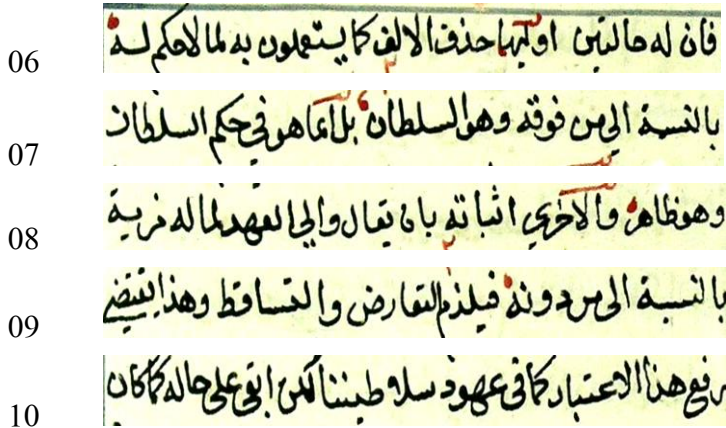 06 فان له حالتين اوليهما حذف الالف كما يستعملون به لما لاحكم له
07 بالنسبة الى من فوقه وهو السلطان بل انما هو في حكم السلطان
08 وهو ظاهر والاخري اثباته بان يقال والي العهد لما له مزية
09 بالنسبة الى من دونه فيلزم التعارض والتساقط وهذا يقتضي
10 رفع هذا الاعتبار كما في عهود سلاطيننا لكن ابقى على حاله كما كان